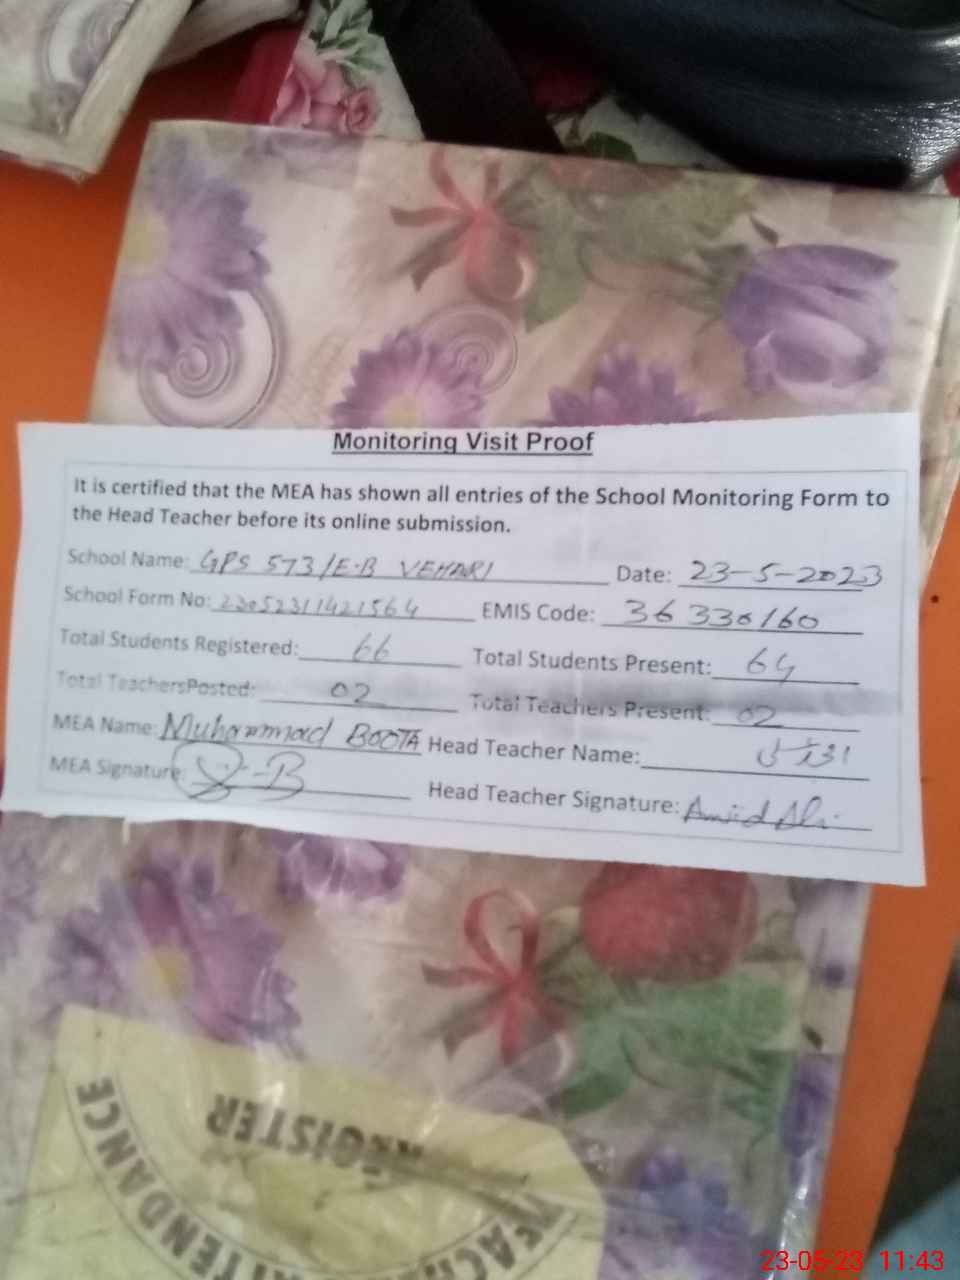 Monitoring Visit Proof
It is certified that the MEA has shown all entries of the School Monitoring Form to
the Head Teacher before its online submission.
School Name: GPS 573/E.B VEHARI Date: 23-5-2023
School Form No: 23052311421564 EMIS Code: 36330160
Total Students Registered: 66 Total Students Present: 64
Total TeachersPosted: 02 Total Teachers Present: 02
MEA Name: Muhammad BOOTA Head Teacher Name:
MEA Signature: Head Teacher Signature: Amjid Ali
REGISTER
ATTENDANCE
23-05-23 11:43